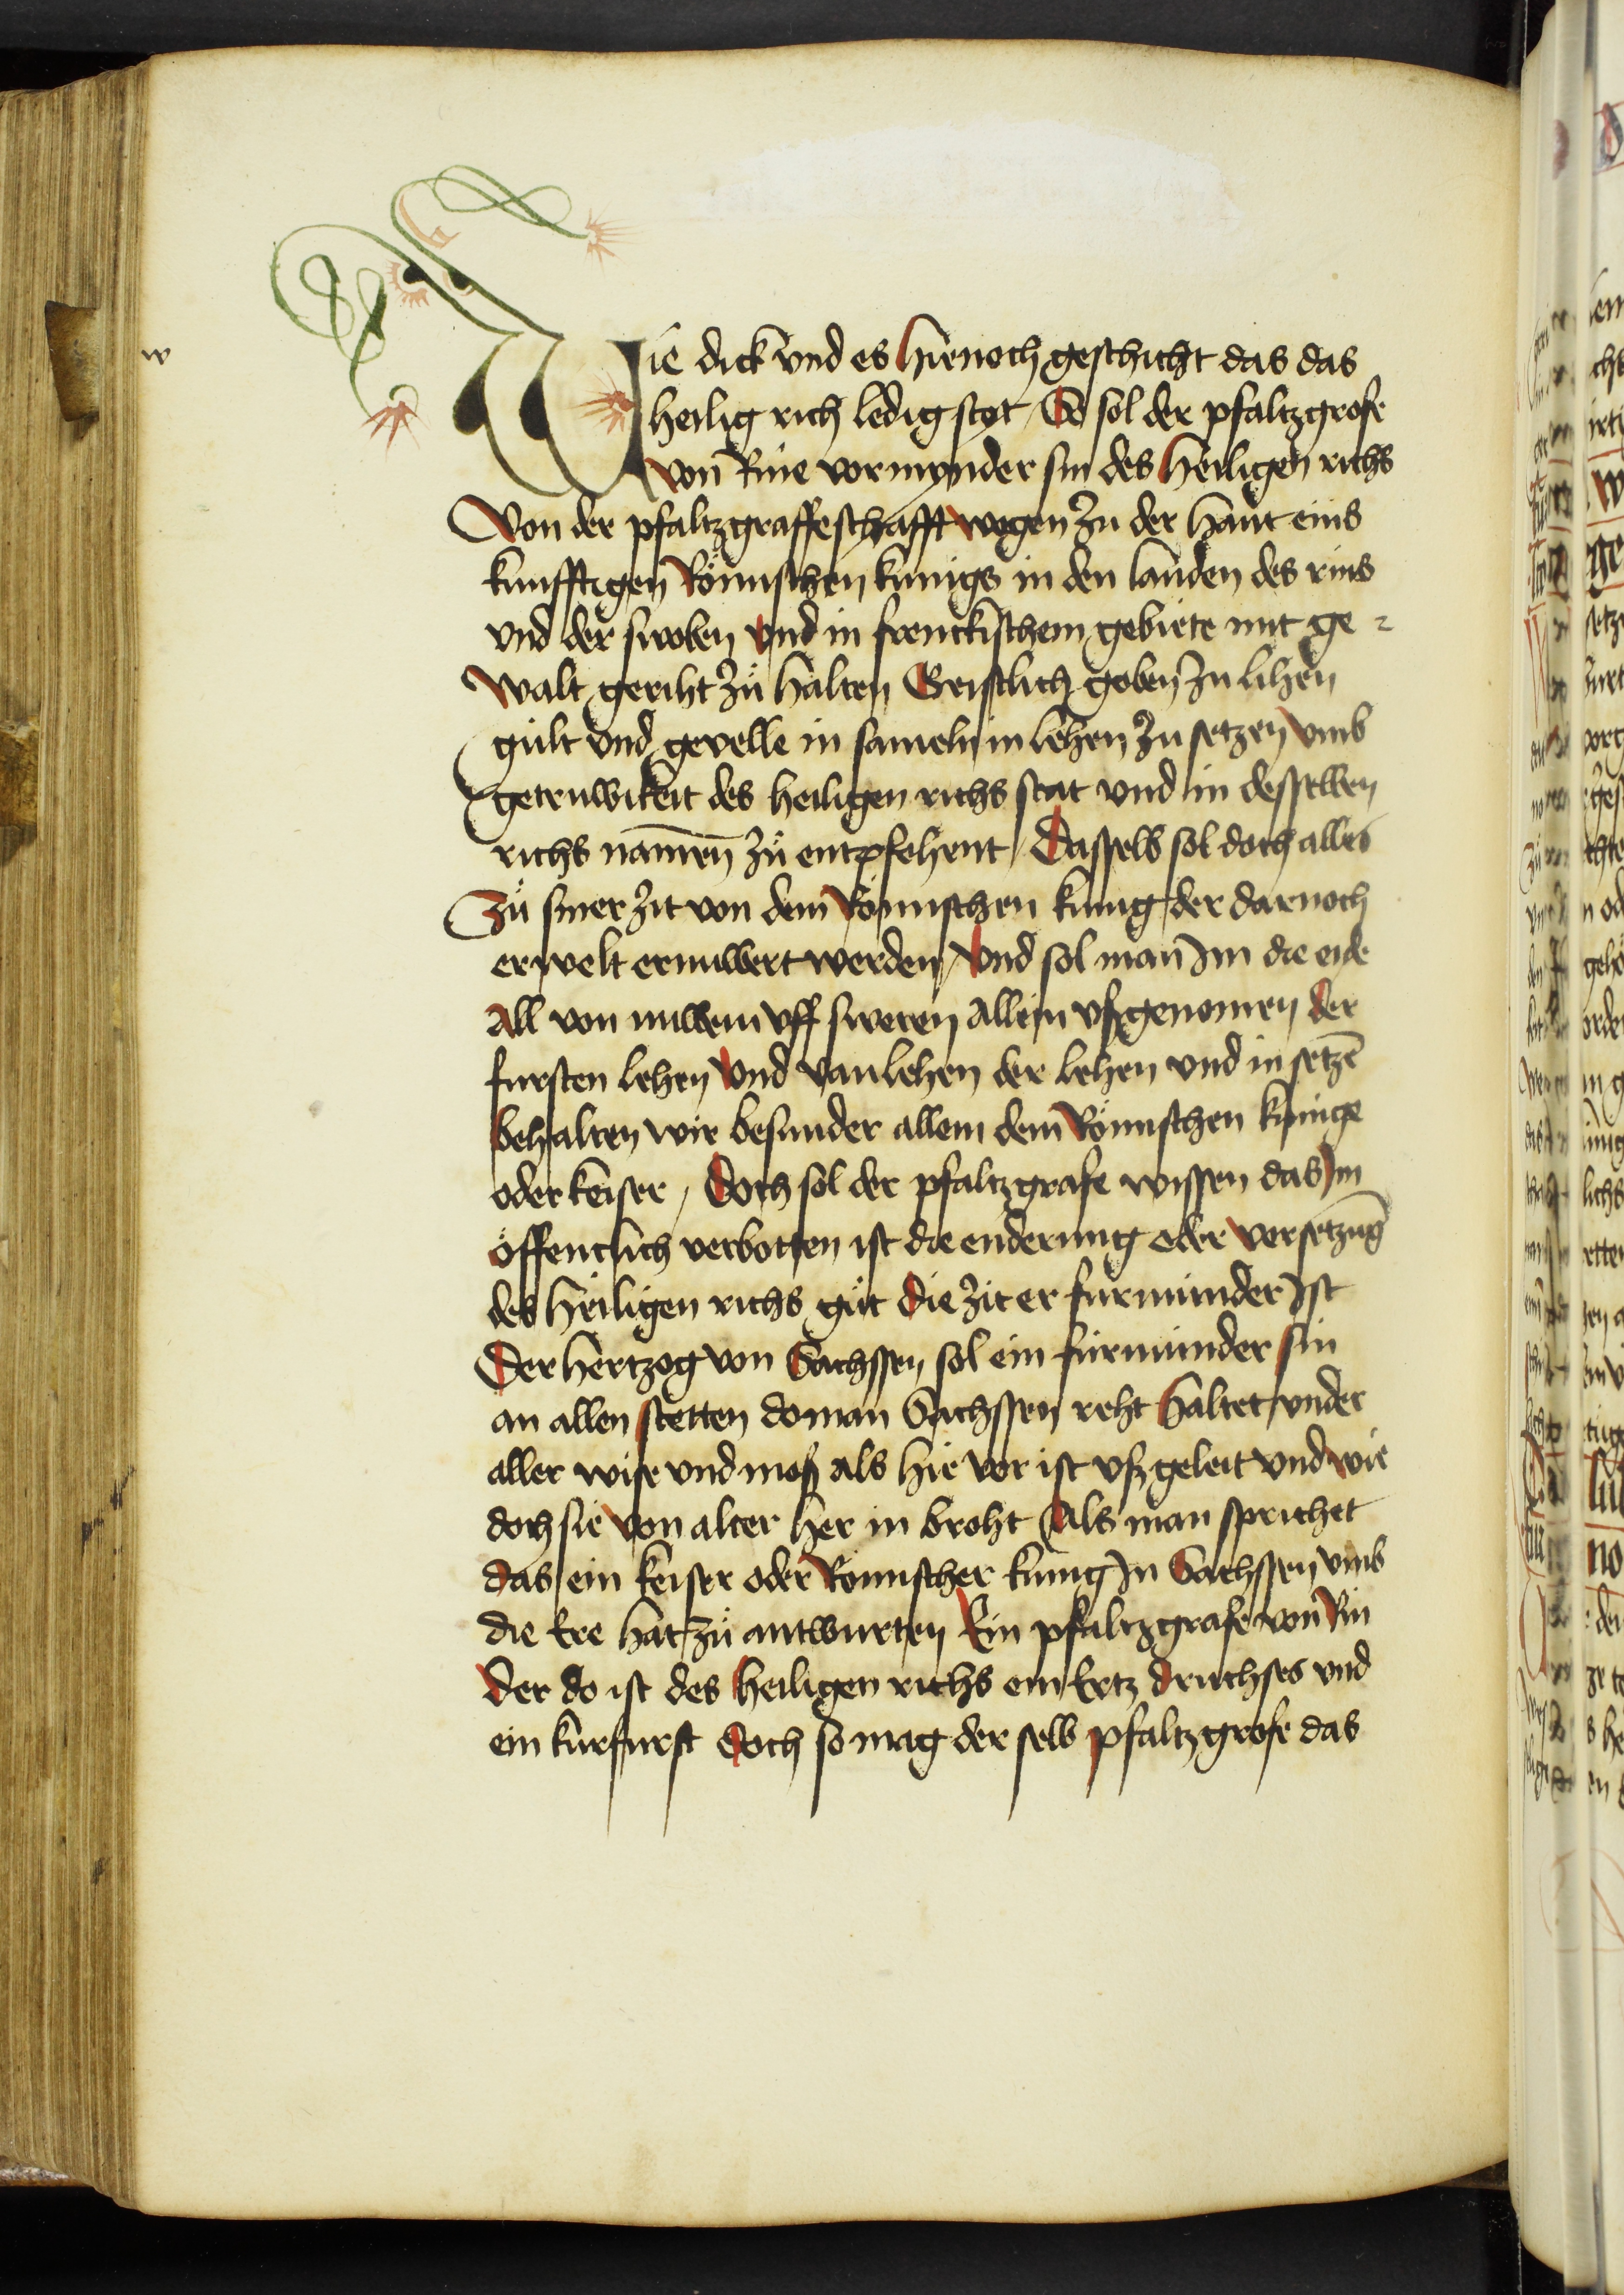 w
Wie dick vnd es hienoch geschicht das das
heilig rich ledig stot / So sol der pfaltzgrofe
von Rine vormynder sin des heiligen richs
Von der pfaltzgraffeschafft wegen zu der hant eins
kunfftigen Römischen kunigs in den landen des rins
vnd der swoben vnd in frenckischem gebiete mit ge⸗
walt geriht zů halten Geistlich goben zu lihen
gult vnd gevelle in sameln in lehen zu setzen vmb
getruwikeit des heiligen richs stat vnd in desselben
richs namen zů entpfohent / Dasselb sol doch alles
Zů siner zit von dem Römischen kunig der darnoch
erwelt ernuwert werden / vnd sol man Im die eide
All von nuwem vff sweren Allein vßgenomen der
fursten lehen vnd van lehen der lehen vnd in setzē
behalten wir besunder allein dem Römischen kunige
oder keiser / Doch sol der pfaltzgrafe wissen das Im
öffentlich verbotten ist die enderung oder versetzūg
des heiligen richs gůt Die zit er furmunder Ist
Der hertzog von Sachssen sol ein furmunder sin
an allen stetten do man Sachssen reht haltet vnder
aller wise vnd moß als hie vor ist vßgeleit vnd wie
doch sie von alter her in broht Als man sprichet
das ein keiser oder Römischer kunig In Sachssen vmb
die Ere hat zů antwurten Ein pfaltzgrafe von Rin
Der do ist des heiligen richs ein Ertz druchses vnd
ein kurfurst Doch so mag der selb pfaltzgrofe das